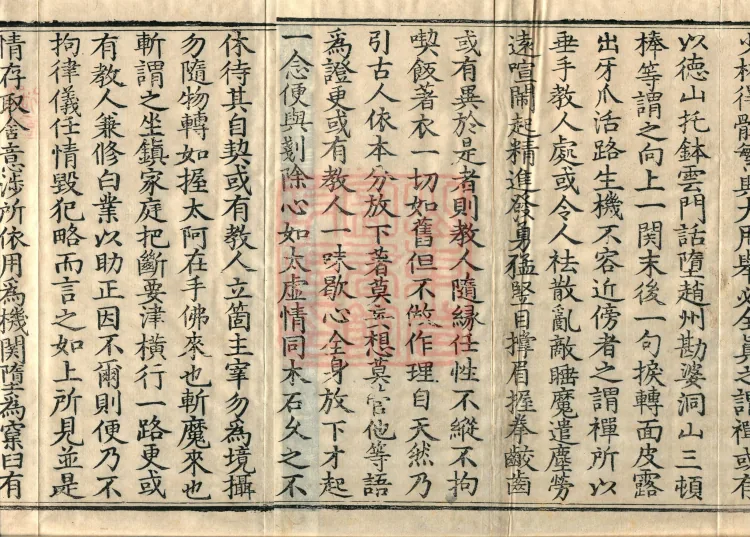 得體無真大用與必全真之謂禪或有
以德山托鉢雲門話墮趙州勘婆洞山三頓
棒等謂之向上一関末後一句捩轉面皮露
出牙爪活路生機不容近傍者之謂禪所以
垂手教人處或令人祛散亂敵睡魔遣塵勞
遠喧鬧起精進發勇猛豎目撑眉握拳齩齒
或有異於是者則教人隨縁任性不縱不拘
喫飯著衣一切如舊但不做作理自天然乃
引古人依本分放下著莫妄想莫管他等語
爲證更或有教人一味歇心全身放下才起
一念便與剗除心如太虚情同木石久之不
休待其自契或有教人立箇主宰勿爲境攝
勿隨物轉如握太阿在手佛來也斬魔來也
斬謂之坐鎮家庭把斷要津横行一路更或
有教人兼修白業以助正因不爾則便乃不
拘律儀任情毀犯略而言之如上所見並是
情存取舍意渉所依用爲機関墮爲窠臼有